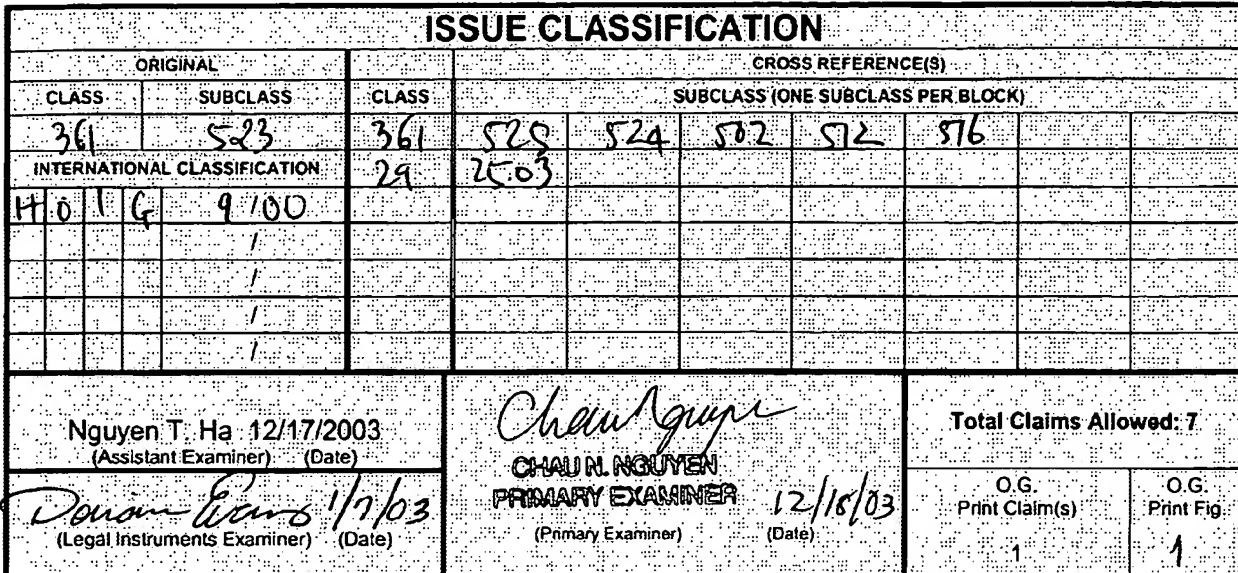 ISSUE CLASSIFICATION
ORIGINAL CROSS REFERENCE(S)
CLASS SUBCLASS CLASS SUBCLASS (ONE SUBCLASS PER BLOCK)
361 523 361 525 524 502 512 516
INTERNATIONAL CLASSIFICATION 29 25.03
H 0 1 G 9 / 00
/
/
/
/
Nguyen T. Ha 12/17/2003
(Assistant Examiner) (Date)
1/7/03
(Legal Instruments Examiner) (Date)
Chau Nguyen
CHAU N. NGUYEN
PRIMARY EXAMINER 12/18/03
(Primary Examiner) (Date)
Total Claims Allowed: 7
O.G. Print Claim(s)
1
O.G. Print Fig.
1